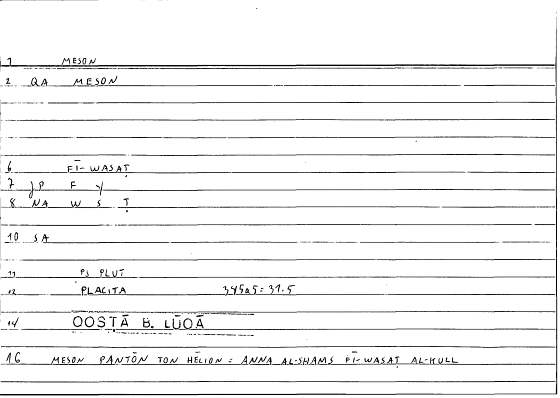 1 MESON
2 QA MESON
6 FĪ-WASAṬ
7 JP F Y
8 NA W S Ṭ
10 SA
11 PS PLUT
12 PLACITA 345a5=31.5
14 QOSṬĀ B. LŪQĀ
16 MESON PANTŌN TON HĒLION = ANNA AL-SHAMS FĪ-WASAṬ AL-KULL